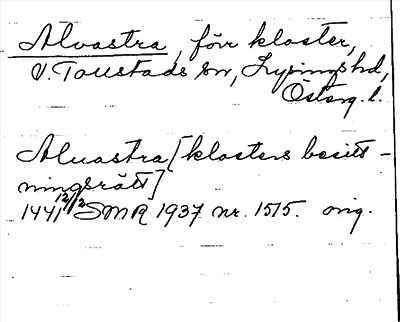 Alvastra, förr kloster,
V. Tollstads sn, Lysings hd,
Österg. l.
Alvastra [klosters besitt-
ningsrätt]
1441 12/12 SMR 1937 nr. 1515. orig.